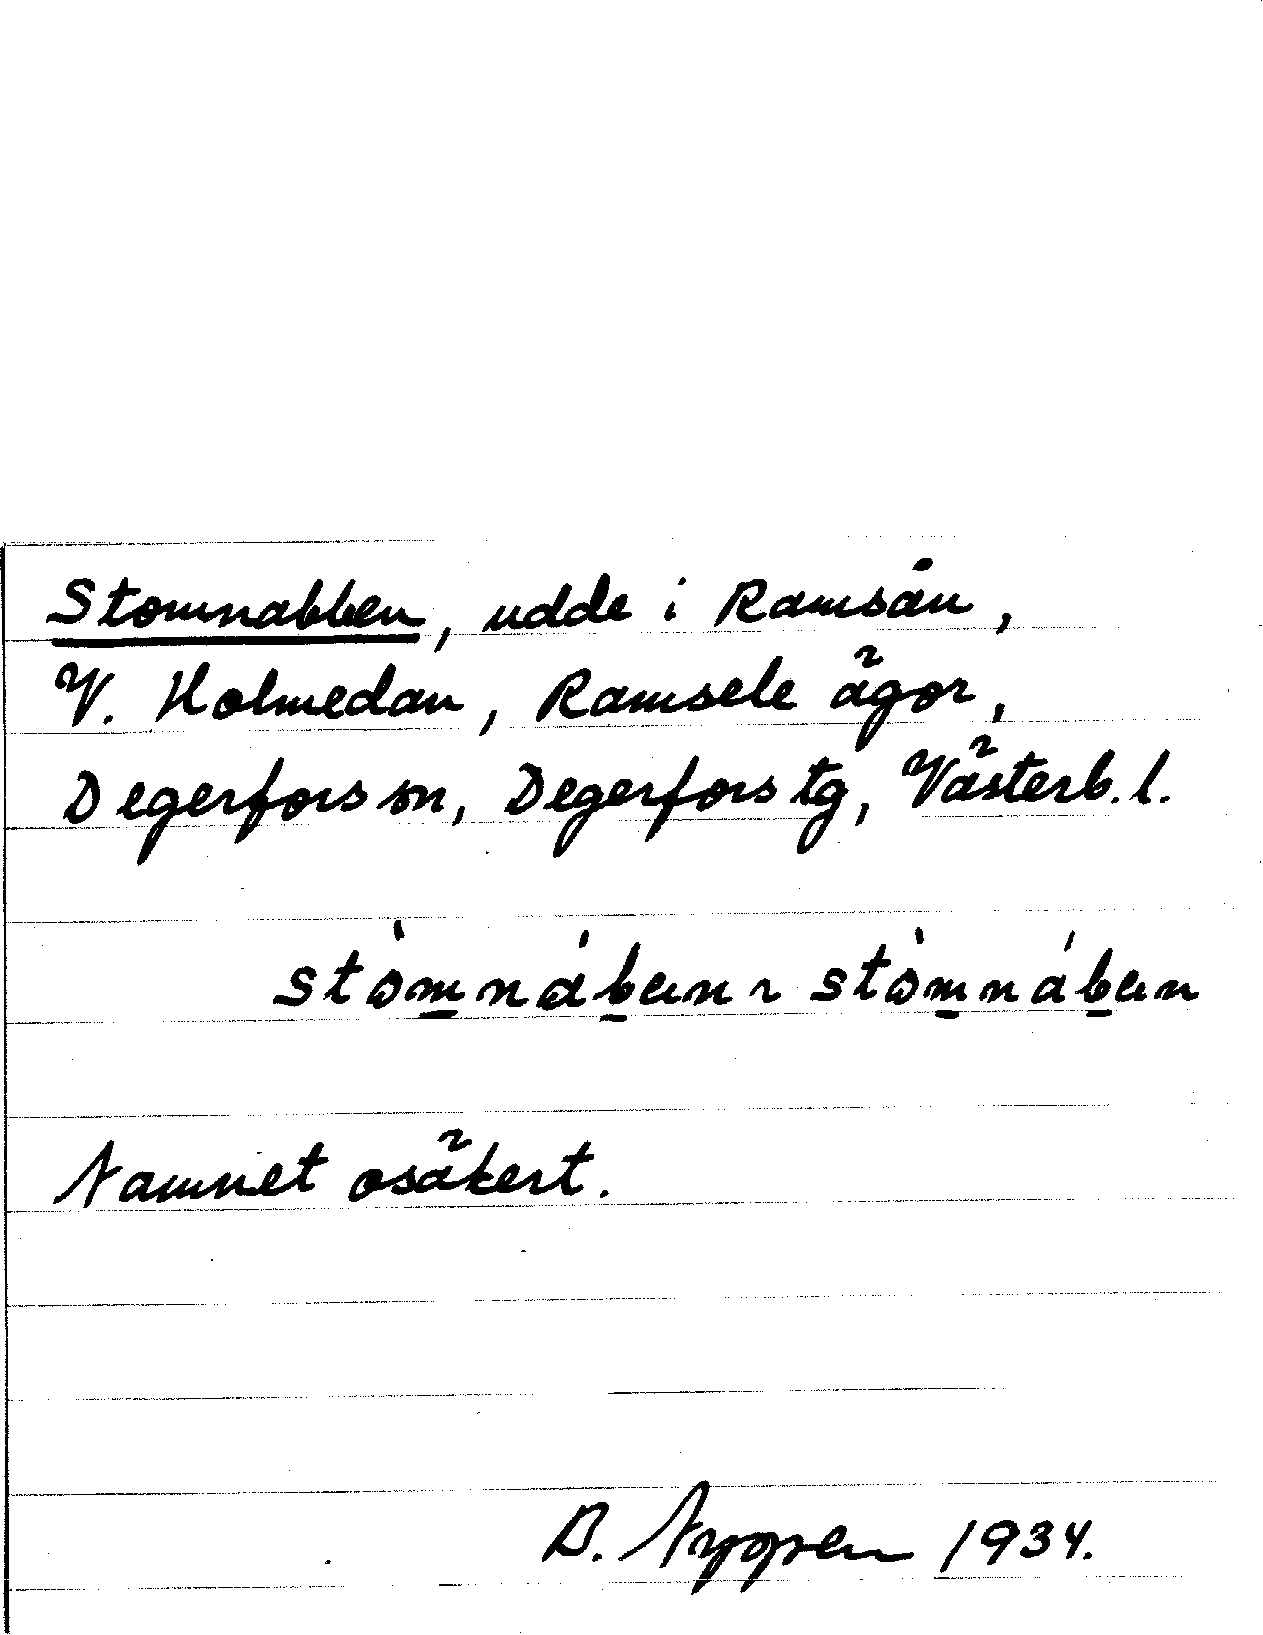 Stomnabben, udde i Ramsån,
V. Holmedan, Ramsele ägor,
Degerfors sn, Degerfors tg, Västerb. l.
stòmnáben ~ stòmnáben
Namnet osäkert.
B. Nygren 1934.